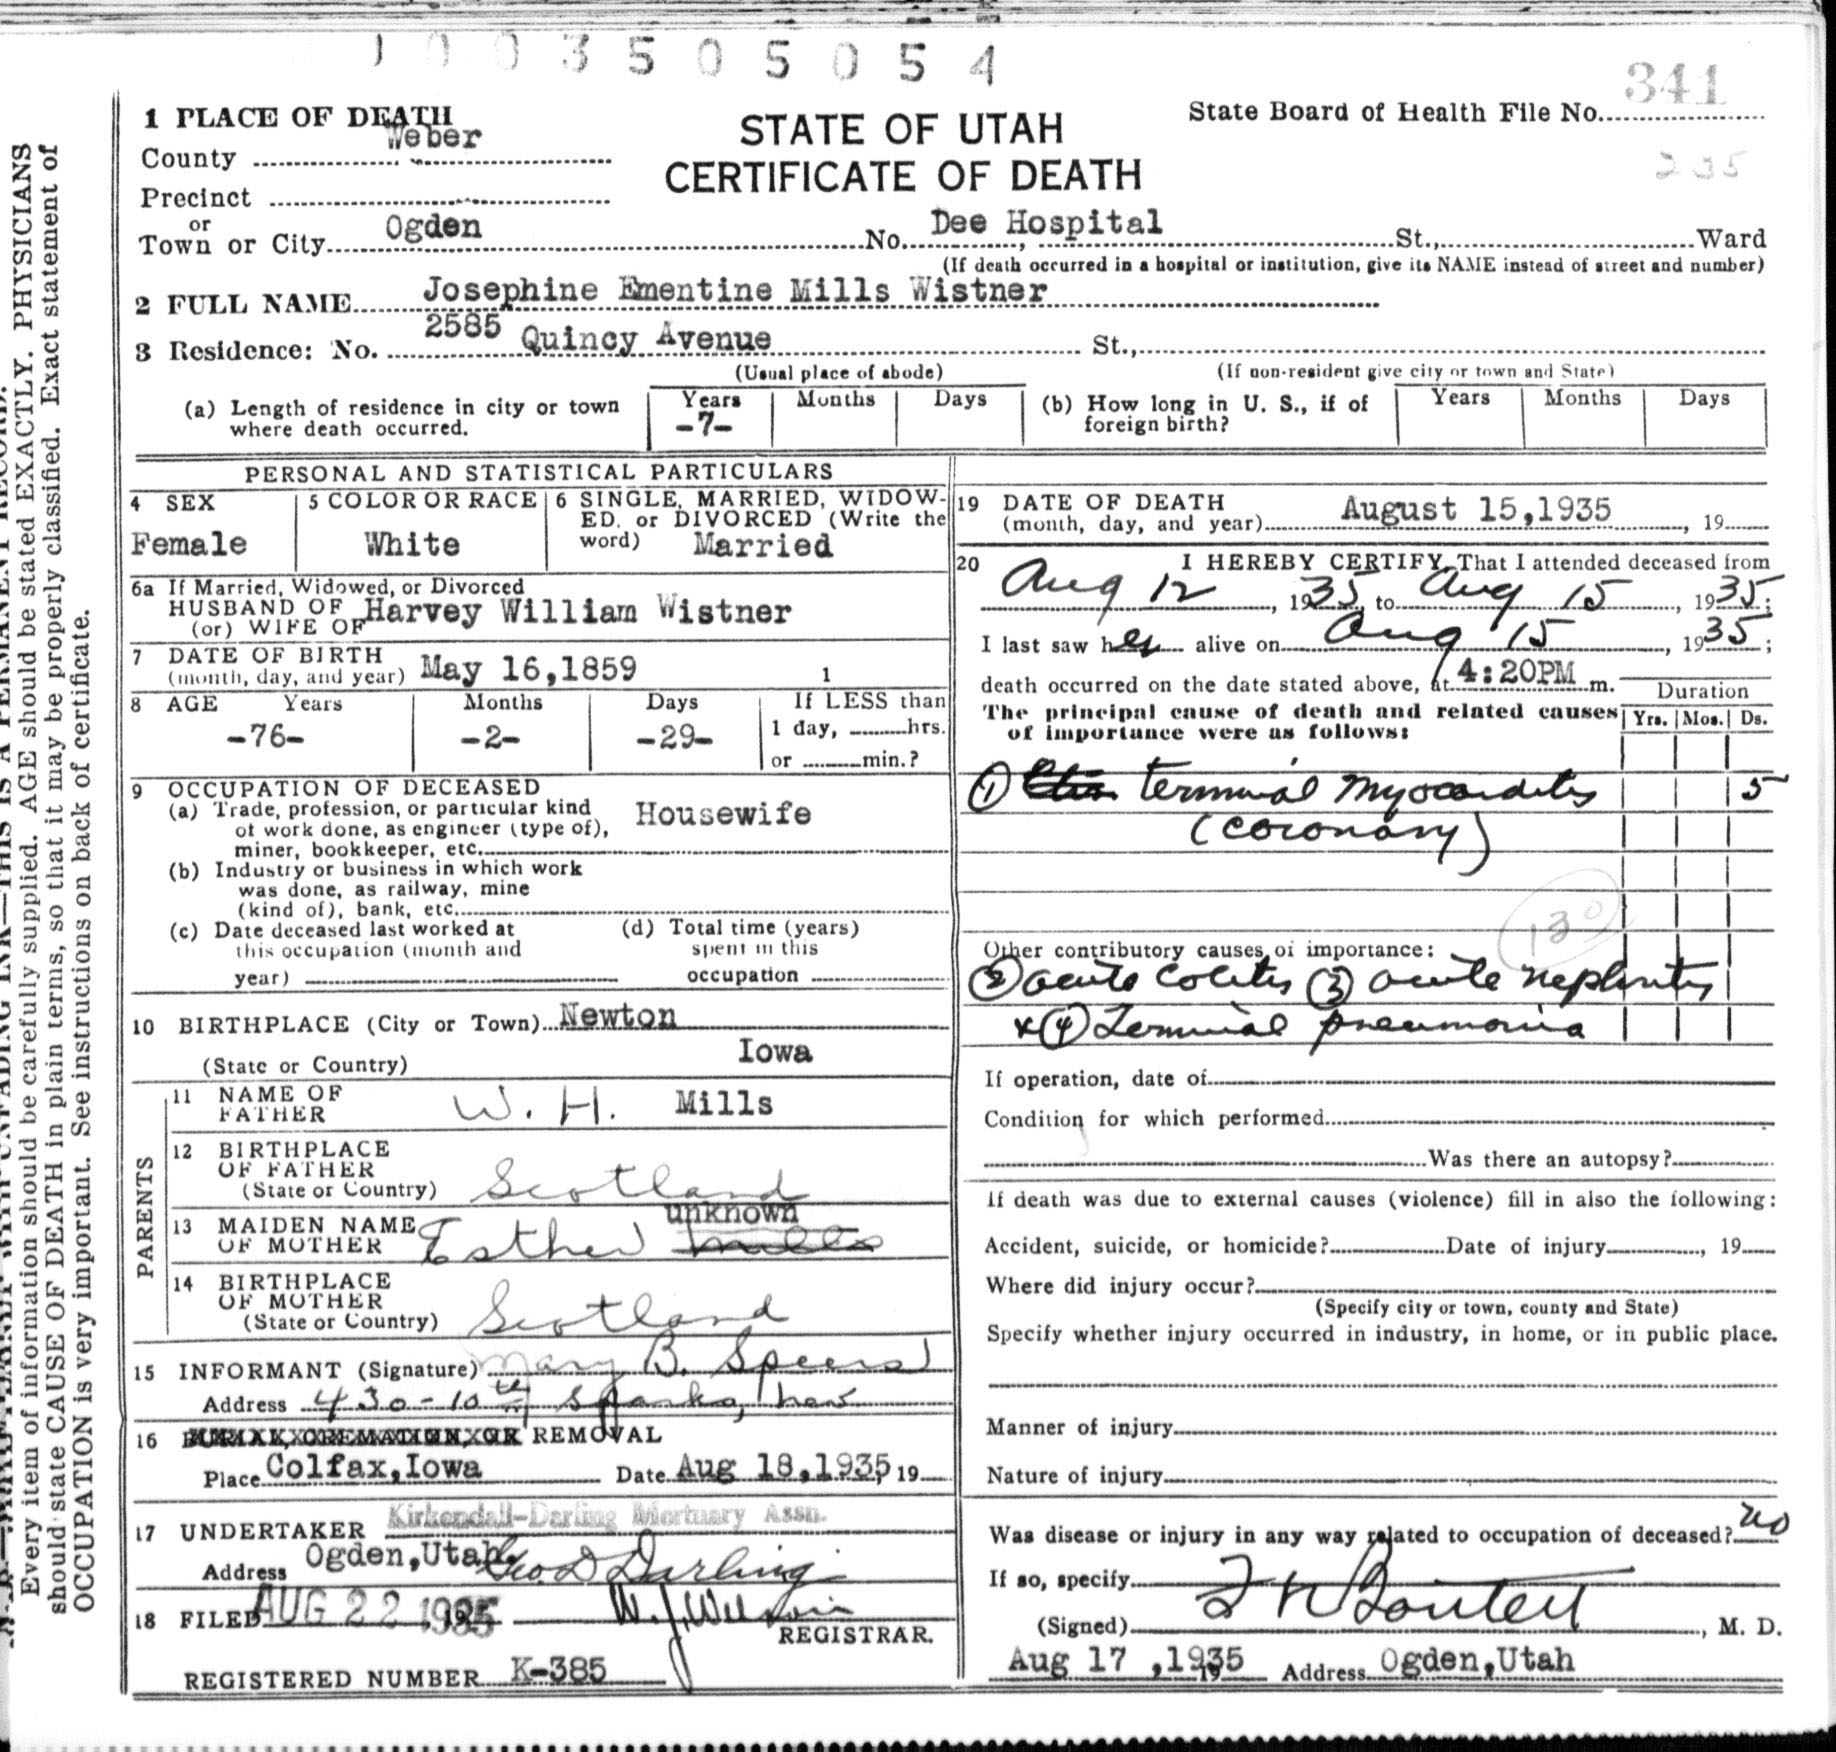 1003505054
341
235
1 PLACE OF DEATH
County Weber
Precinct
or
Town or City Ogden No. Dee Hospital St., Ward
(If death occurred in a hospital or institution, give its NAME instead of street and number)
STATE OF UTAH
CERTIFICATE OF DEATH
State Board of Health File No.
2 FULL NAME Josephine Ementine Mills Wistner
3 Residence: No. 2585 Quincy Avenue St.,
(Usual place of abode) (If non-resident give city or town and State)
(a) Length of residence in city or town where death occurred. Years -7- Months Days
(b) How long in U. S., if of foreign birth? Years Months Days
PERSONAL AND STATISTICAL PARTICULARS
4 SEX
Female
5 COLOR OR RACE
White
6 SINGLE, MARRIED, WIDOW-
ED, or DIVORCED (Write the
word) Married
6a If Married, Widowed, or Divorced
HUSBAND OF
(or) WIFE OF Harvey William Wistner
7 DATE OF BIRTH
(month, day, and year) May 16,1859 1
8 AGE Years Months Days If LESS than
-76- -2- -29- 1 day, hrs.
or min.?
9 OCCUPATION OF DECEASED
(a) Trade, profession, or particular kind
of work done, as engineer (type of),
miner, bookkeeper, etc. Housewife
(b) Industry or business in which work
was done, as railway, mine
(kind of), bank, etc.
(c) Date deceased last worked at
this occupation (month and
year)
(d) Total time (years)
spent in this
occupation
10 BIRTHPLACE (City or Town) Newton
(State or Country) Iowa
PARENTS
11 NAME OF
FATHER W. H. Mills
12 BIRTHPLACE
OF FATHER
(State or Country) Scotland
13 MAIDEN NAME
OF MOTHER Esther Mills unknown
14 BIRTHPLACE
OF MOTHER
(State or Country) Scotland
15 INFORMANT (Signature) Mary B. Speers
Address 430-10th Sparks, Nev
16 BURIAL, CREMATION, OR REMOVAL
Place Colfax,Iowa Date Aug 18,1935 19
17 UNDERTAKER Kirkendall-Darling Mortuary Assn.
Address Ogden,Utah. Geo D Darling
18 FILED AUG 22 1935 W. J. Wilson
REGISTRAR.
REGISTERED NUMBER K-385
19 DATE OF DEATH
(month, day, and year) August 15,1935, 19
20 I HEREBY CERTIFY, That I attended deceased from
Aug 12, 1935, to Aug 15, 1935;
I last saw her alive on Aug 15, 1935;
death occurred on the date stated above, at 4:20PM m.
Duration
The principal cause of death and related causes
of importance were as follows:
Yrs. Mos. Ds.
(1) terminal myocarditis 5
(coronary)
130
Other contributory causes of importance:
(2) acute colitis (3) acute nephritis
x(4) Terminal pneumonia
If operation, date of
Condition for which performed
Was there an autopsy?
If death was due to external causes (violence) fill in also the following:
Accident, suicide, or homicide? Date of injury, 19
Where did injury occur?
(Specify city or town, county and State)
Specify whether injury occurred in industry, in home, or in public place.
Manner of injury
Nature of injury
Was disease or injury in any way related to occupation of deceased? no
If so, specify
(Signed) , M. D.
Aug 17 ,1935 19 Address Ogden,Utah
Every item of information should be carefully supplied. AGE should be stated EXACTLY. PHYSICIANS
should state CAUSE OF DEATH in plain terms, so that it may be properly classified. Exact statement of
OCCUPATION is very important. See instructions on back of certificate.